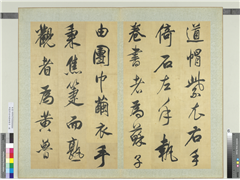 道帽紫衣右手
倚石左手執
卷書者為蘇子
由團巾繭衣手
秉蕉箑而熟
觀者為黃魯